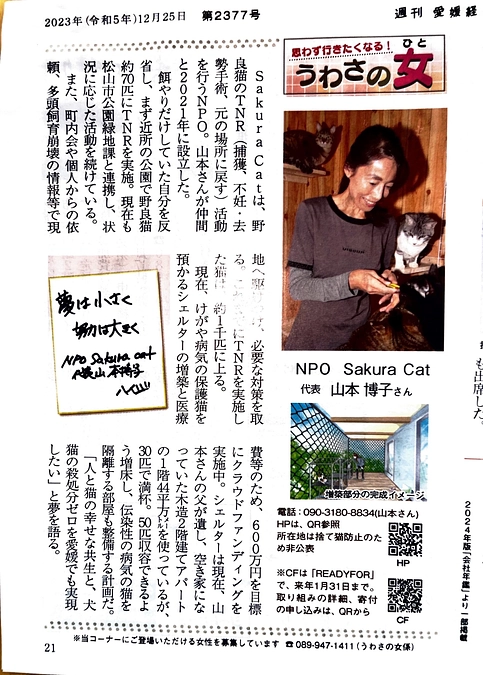 2023年(令和5年)12月25日　第2377号
週刊 愛媛経
思わず行きたくなる!
うわさの女
ひと
Sakura Catは、野
良猫のTNR(捕獲、不妊・去
勢手術、元の場所に戻す)活動
を行うNPO。山本さんが仲間
と2021年に設立した。
餌やりだけしていた自分を反
省し、まず近所の公園で野良猫
約70匹にTNRを実施。現在も
松山市公園緑地課と連携し、状
況に応じた活動を続けている。
また、町内会や個人からの依
頼、多頭飼育崩壊の情報等で現
地へ駆け、必要な対策を取
る。にTNRを実施し
た猫は、約1千匹に上る。
現在、けがや病気の保護猫を
預かるシェルターの増築と医療
費等のため、600万円を目標
にクラウドファンディングを
実施中。シェルターは現在、山
本さんの父が遺し、空き家にな
っていた木造2階建てアパート
の1階44平方㍍を使っているが、
30匹で満杯。50匹収容できるよ
う増床し、伝染性の病気の猫を
隔離する部屋も整備する計画だ。
「人と猫の幸せな共生と、犬
猫の殺処分ゼロを愛媛でも実現
したい」と夢を語る。
夢は小さく
努力は大きく
NPO Sakura cat
代表 山本博子
NPO　Sakura Cat
代表　山本 博子さん
増築部分の完成イメージ
電話：090-3180-8834(山本さん)
HPは、QR参照
所在地は捨て猫防止のた
め非公表
HP
※CFは「READYFOR」
で、来年1月31日まで。
取り組みの詳細、寄付
の申し込みは、QRから
CF
も出席した
2024年版「会社年鑑」より一部掲載
21
※当コーナーにご登場いただける女性を募集しています ☎089-947-1411(うわさの女係)